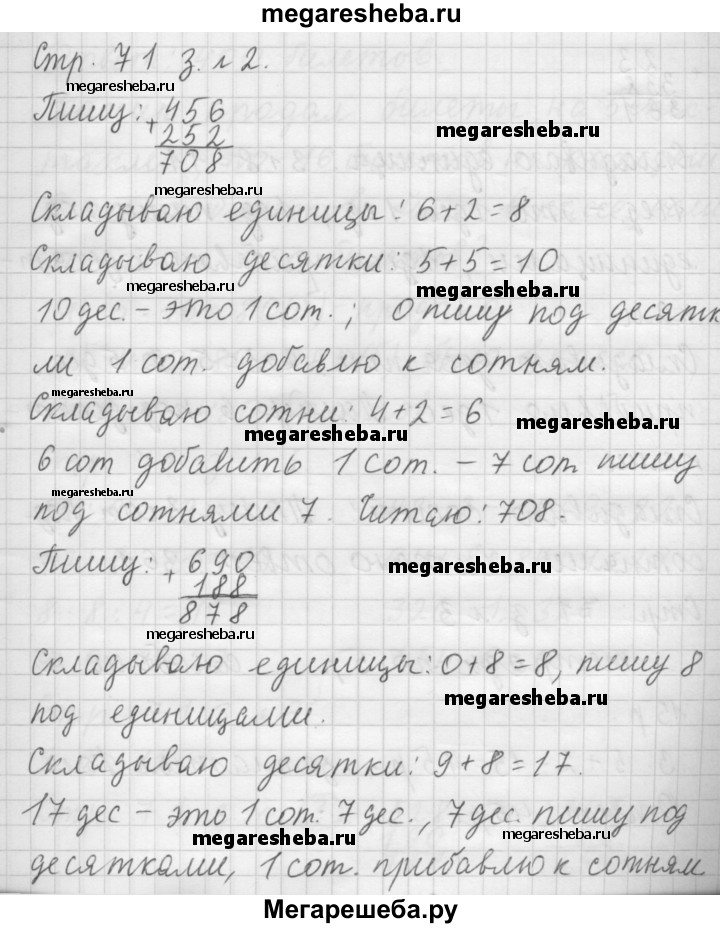 megaresheba.ru
Стр. 71 з. № 2.
megaresheba.ru
Пишу: + 456
252
708
megaresheba.ru
megaresheba.ru
Складываю единицы: 6+2=8
Складываю десятки: 5+5=10
megaresheba.ru
megaresheba.ru
10 дес. – это 1 сот.; 0 пишу под десятк
ми 1 сот. добавлю к сотням.
megaresheba.ru
Складываю сотни: 4+2=6
megaresheba.ru
megaresheba.ru
6 сот добавить 1 сот. – 7 сот пишу
megaresheba.ru
под сотнями 7. Читаю: 708.
Пишу: + 690
188
878
megaresheba.ru
megaresheba.ru
Складываю единицы: 0+8=8, пишу 8
megaresheba.ru
под единицами.
Складываю десятки: 9+8=17.
17 дес – это 1 сот. 7 дес., 7 дес. пишу под
megaresheba.ru
megaresheba.ru
десятками, 1 сот. прибавлю к сотням
Мегарешеба.ру